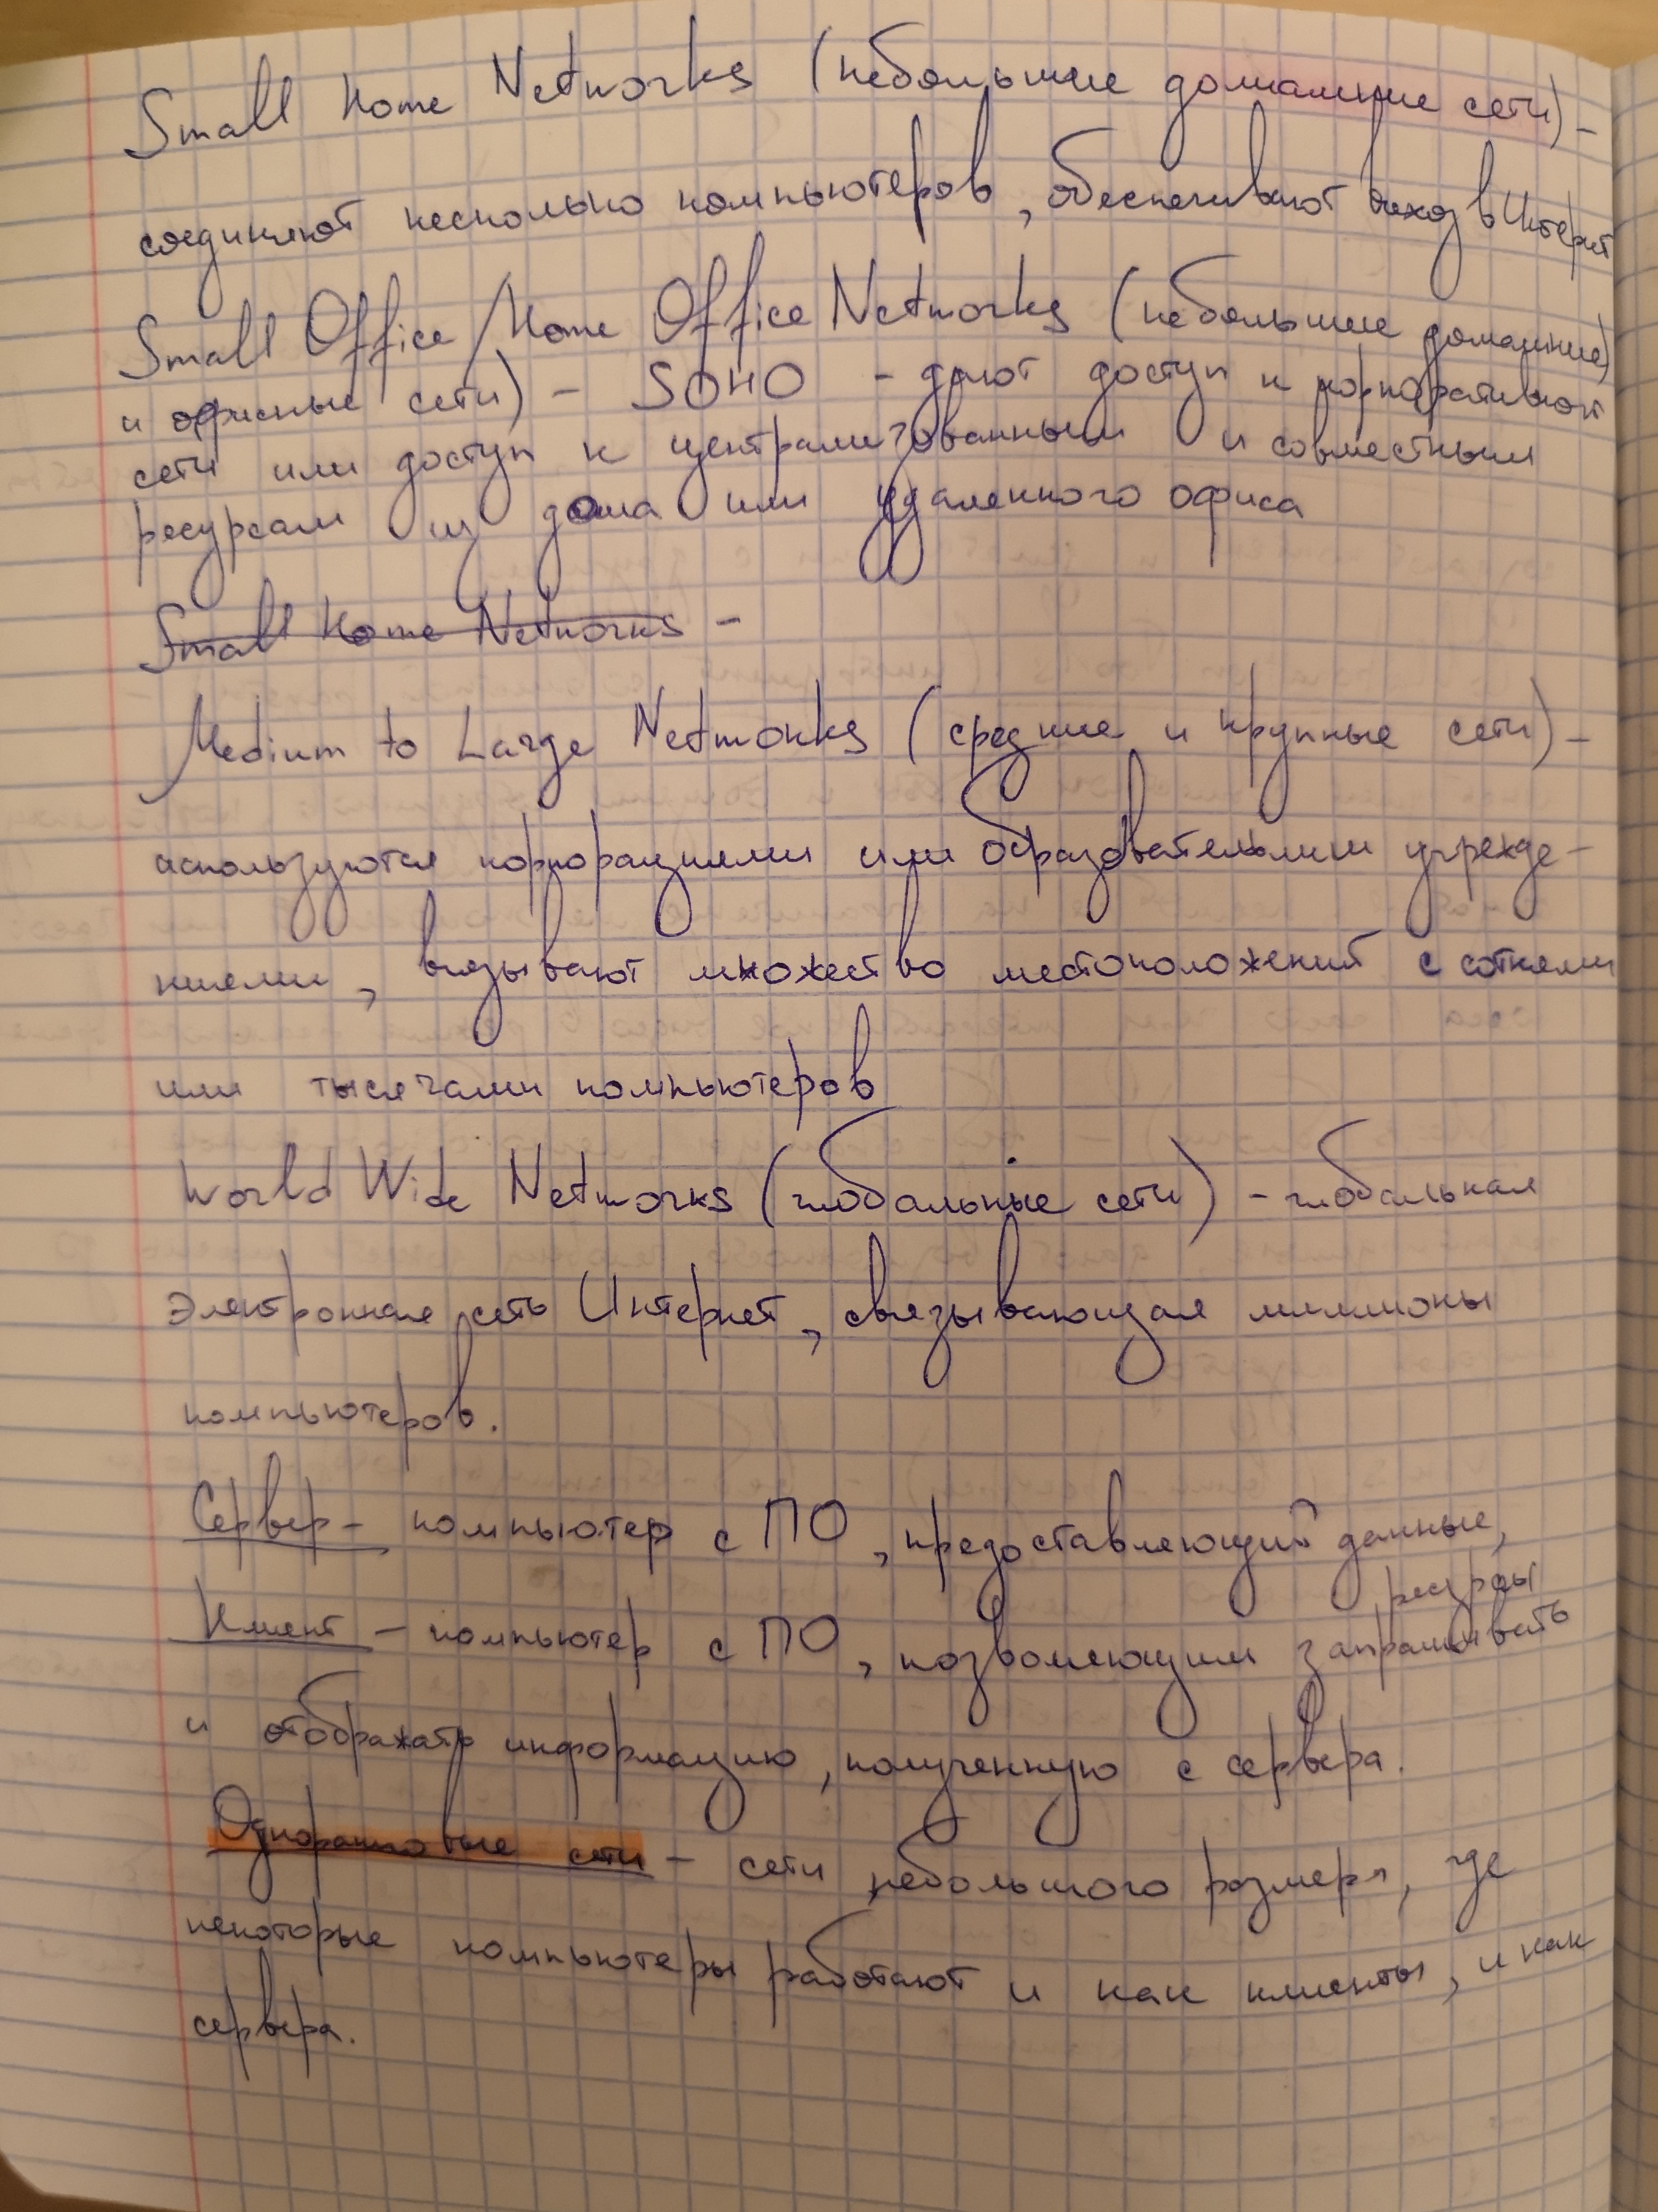 Small Home Networks (небольшие домашние сети) -
соединяют несколько компьютеров, обеспечивают выход в Интернет
Small Office/Home Office Networks (небольшие домашние)
и офисные сети) - SOHO - дают доступ к корпоративной
сети или доступ к централизованным и совместным
ресурсам из дома или удаленного офиса
Small Home Networks -
Medium to Large Networks (средние и крупные сети) -
используются корпорациями или образовательными учрежде-
ниями, связывают множество местоположений с сотнями
или тысячами компьютеров
World Wide Networks (глобальные сети) - глобальная
электронная сеть Интернет, связывающая миллионы
компьютеров.
Сервер - компьютер с ПО, предоставляющий данные,
ресурсы
Клиент - компьютер с ПО, позволяющим запрашивать
и отображать информацию, полученную с сервера.
Одноранговые сети - сети небольшого размера, где
некоторые компьютеры работают и как клиенты, и как
сервера.